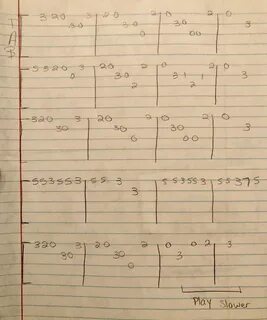 T 320 3|20 2|0 2|0
A 30 30 30 3
B 0 00
5520 3|20 2|0 2|0
0 30 31 1 3
2 2
320 3|20 2|0 2|0
30 30 30 3
0 00
553553|55 3|553553|55375
3
320 3|20 2|0 02|3
30 30 3
0
Play slower